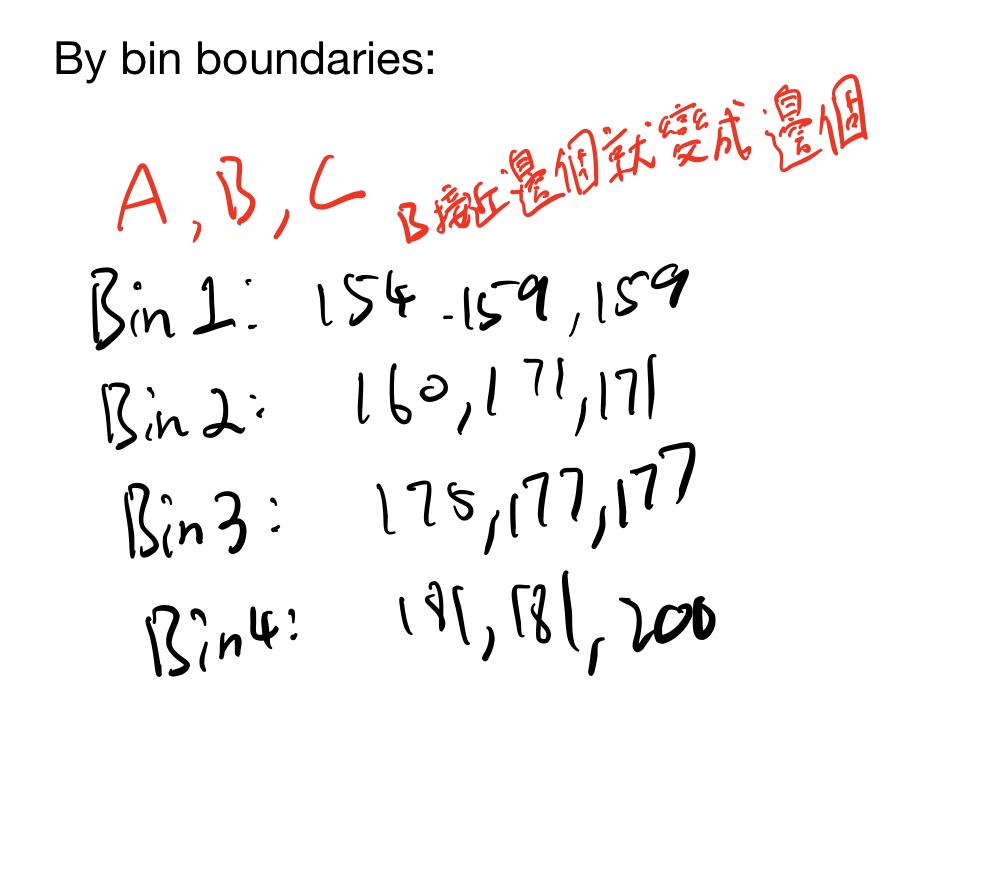 By bin boundaries:
A, B, C B接近邊個就變成邊個
Bin 1: 154 -159, 159
Bin 2: 160, 171, 171
Bin 3: 175, 177, 177
Bin 4: 181, 181, 200